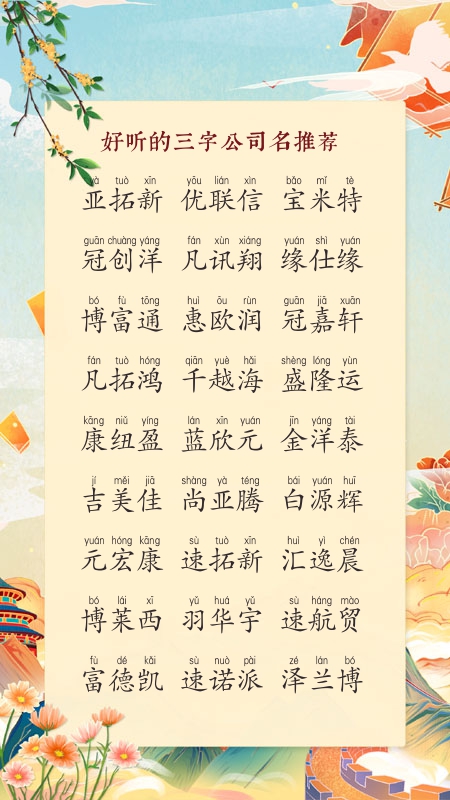 好听的三字公司名推荐
yà tuò xīn yōu lián xìn bǎo mǐ tè
亚拓新 优联信 宝米特
guān chuàng yáng fán xùn xiáng yuán shì yuán
冠创洋 凡讯翔 缘仕缘
bó fù tōng huì ōu rùn guān jiā xuān
博富通 惠欧润 冠嘉轩
fán tuò hóng qiān yuè hǎi shèng lóng yùn
凡拓鸿 千越海 盛隆运
kāng niǔ yíng lán xīn yuán jīn yáng tài
康纽盈 蓝欣元 金洋泰
jí měi jiā shàng yà téng bái yuán huī
吉美佳 尚亚腾 白源辉
yuán hóng kāng sù tuò xīn huì yì chén
元宏康 速拓新 汇逸晨
bó lái xī yǔ huá yǔ sù háng mào
博莱西 羽华宇 速航贸
fù dé kǎi sù nuò pài zé lán bó
富德凯 速诺派 泽兰博